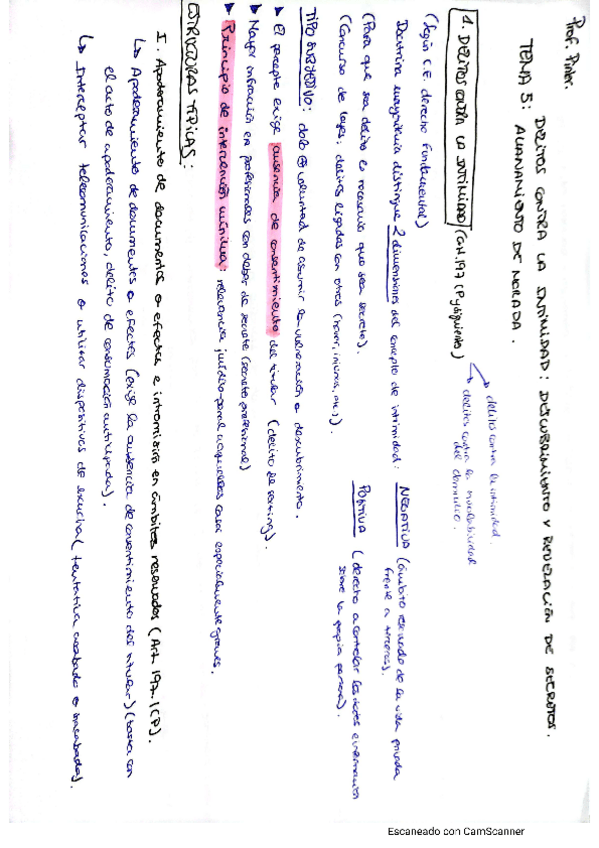 Prof. Pinter.
TEMA 5: DELITOS CONTRA LA INTIMIDAD: DESCUBRIMIENTO Y REVELACIÓN DE SECRETOS.
ALLANAMIENTO DE MORADA.
1. DELITOS CONTRA LA INTIMIDAD (art. 197 CP y siguiente)
delito contra la intimidad.
delitos contra la inviolabilidad del domicilio.
(Según C.E. derecho fundamental)
Doctrina mayoritaria distingue 2 dimensiones del concepto de intimidad: NEGATIVA (ámbito excluido de la vida privada frente a terceros).
POSITIVA (derecho a controlar los datos e información sobre la propia persona).
(Para que sea delito es necesario que sea secreto).
(Concurso de leyes; delitos ligados con otros (honor, injurias, etc.)).
TIPO SUBJETIVO: dolo voluntad de asumir la vulneración o descubrimiento.
► El precepto exige ausencia de consentimiento del titular (delito de sexting).
► Mayor infracción en profesionales con deber de secreto (secreto profesional)
► Principio de intervención mínima: relevancia jurídico-penal aquellos casos especialmente graves.
ESTRUCTURAS TÍPICAS:
I. Apoderamiento de documentos o efectos e intromisión en ámbitos reservados (Art. 197.1 CP).
↳ Apoderamiento de documentos o efectos (exige la ausencia de consentimiento del titular) (basta con
el acto de apoderamiento, delito de consumación anticipada).
↳ Interceptar telecomunicaciones o utilizar dispositivos de escucha (tentativa acabada o inacabada).
Escaneado con CamScanner